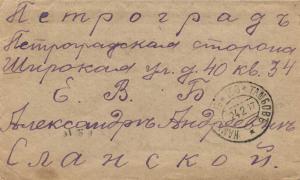 Петроградъ
Петроградская сторона
Широкая ул. д. 40 кв. 34
Е. В. Б.
Александрѣ Андреевнѣ
Сланской.
ТАМБОВЪ
24.2.17